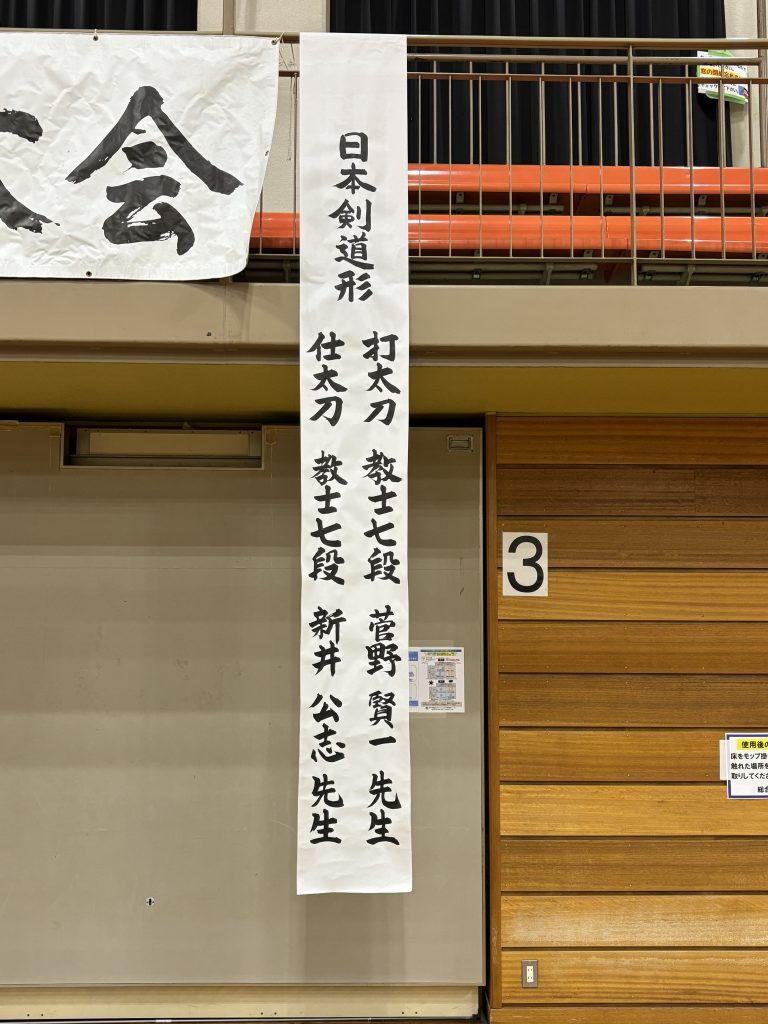 会
日本剣道形
打太刀 教士七段 菅野 賢一 先生
仕太刀 教士七段 新井 公志 先生
3
使用後の
床をモップ掛
触れた場所を
取りしてくださ
総合